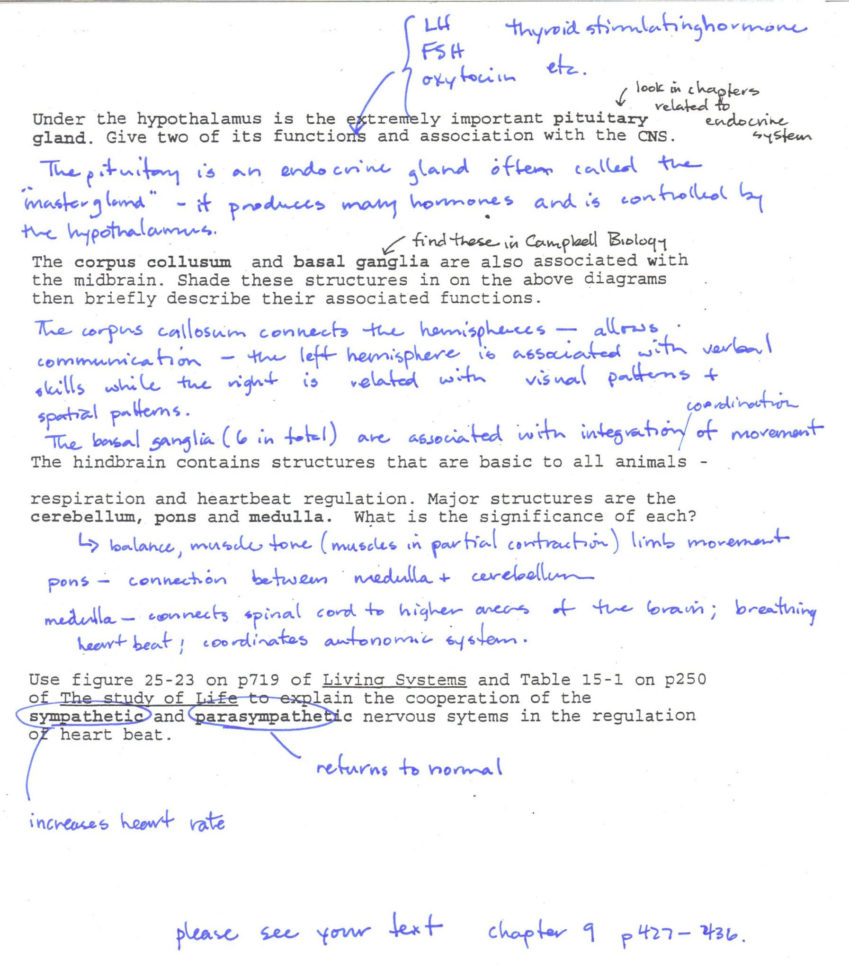 LH thyroid stimulating hormone
FSH
oxytocin etc.
look in chapters
related to
endocrine
system
Under the hypothalamus is the extremely important pituitary
gland. Give two of its functions and association with the CNS.
The pituitary is an endocrine gland often called the
"master gland" - it produces many hormones and is controlled by
the hypothalamus.
find these in Campbell Biology
The corpus collusum and basal ganglia are also associated with
the midbrain. Shade these structures in on the above diagrams
then briefly describe their associated functions.
The corpus callosum connects the hemispheres — allows
communication - the left hemisphere is associated with verbal
skills while the right is related with visual patterns +
spatial patterns.
coordination
The basal ganglia (6 in total) are associated with integration/ of movement
The hindbrain contains structures that are basic to all animals -
respiration and heartbeat regulation. Major structures are the
cerebellum, pons and medulla. What is the significance of each?
↳ balance, muscle tone (muscles in partial contraction) limb movement
pons - connection between medulla + cerebellum
medulla - connects spinal cord to higher areas of the brain; breathing
heart beat; coordinates autonomic system.
Use figure 25-23 on p719 of Living Systems and Table 15-1 on p250
of The study of Life to explain the cooperation of the
sympathetic and parasympathetic nervous sytems in the regulation
of heart beat.
returns to normal
increases heart rate
please see your text chapter 9 p427-436.